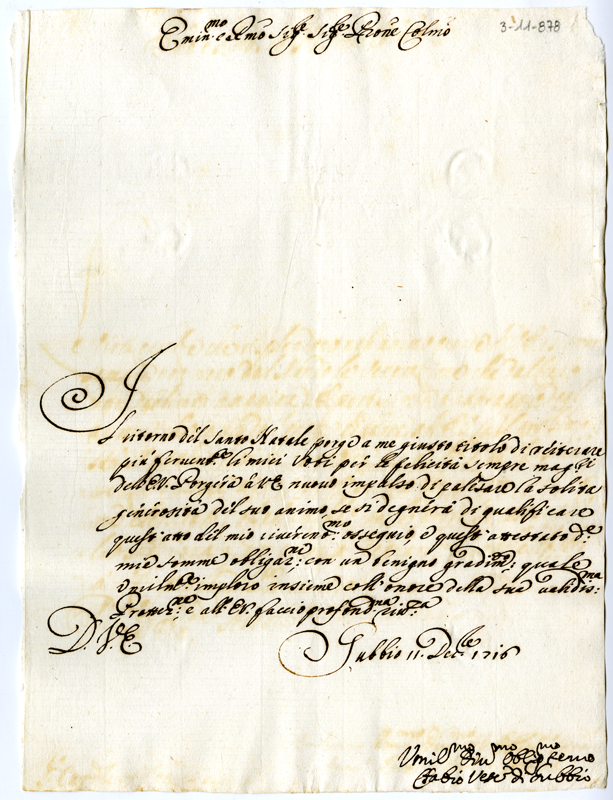 3-11-878
Emin.mo e Rmo Sig.re Sig.re Prone Colmo
Il ritorno del Santo Natale porge a me giusto titolo di reiterare
più fervent.e li miei voti per le felicità sempre magg.ri
dell'E.V. Porgerà à V.E. nuovo impulso di palesare la solita
generosità del suo animo, se si degnerà di qualificare
quest'atto del mio riverend.mo ossequio, e quest'attestato d.e
mie somme obligaz.ni con un benigno gradim.to; quale
umilm.te imploro insieme coll'onore della sua validis.ma
Protez.ne e all'E.V. faccio profond.ma riv.za
D. V. E.
Gubbio 11. Dec.bre 1716
Umil.mo Div.mo Oblig.mo Servo
Fabio Vesc.o di Gubbio